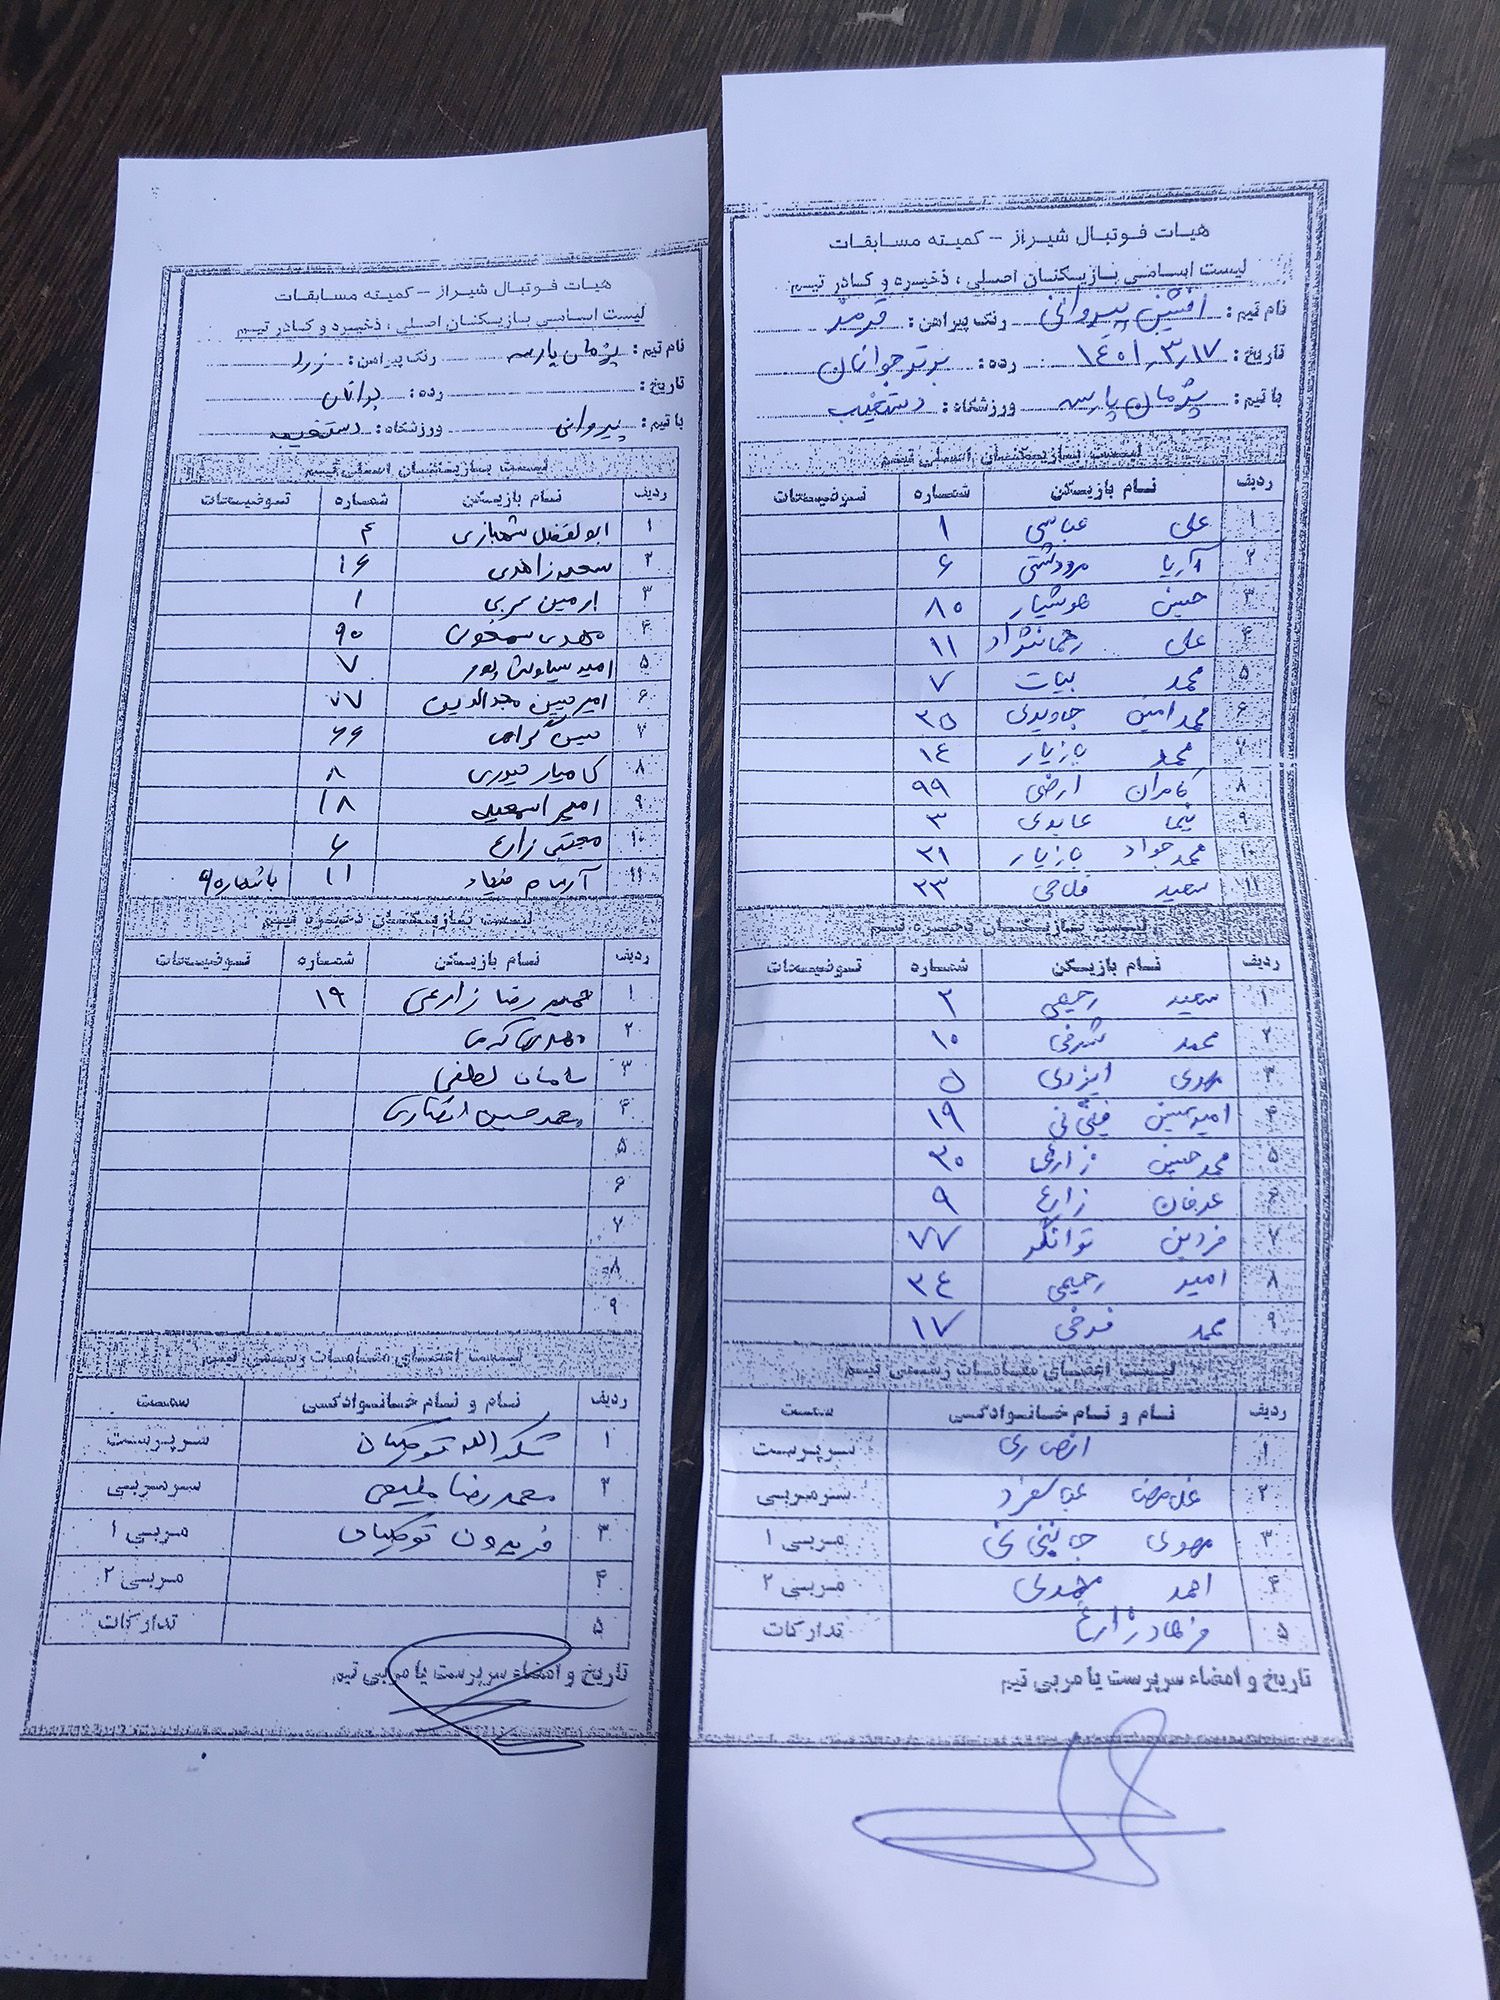 هیات فوتبال شیراز – کمیته مسابقات
لیست اسامی بازیکنان اصلی ، ذخیره و کادر تیم
نام تیم : افشین پیروانی رنگ پیراهن : قرمز
تاریخ : ۱۴۰۱,۳,۱۷ رده : برتر جوانان
با تیم : پژمان پارسه ورزشگاه : دستغیب
لیست بازیکنان اصلی تیم
ردیف نام بازیکن شماره توضیحات
۱ علی عباسی ۱
۲ آریا مرودشتی ۶
۳ حسین هوشیار ۸۰
۴ علی رحماننژاد ۱۱
۵ محمد بیات ۷
۶ محمدامین جاویدی ۳۵
۷ محمد بازیار ۱۴
۸ کامران ارضی ۹۹
۹ نیما عابدی ۳
۱۰ محمدجواد بازیار ۲۱
۱۱ سعید فلاحی ۳۳
لیست بازیکنان ذخیره تیم
ردیف نام بازیکن شماره توضیحات
۱ سعید رحیمی ۲
۲ محمد شرفی ۱۰
۳ مهدی ایزدی ۵
۴ امیرحسین ۱۹
۵ محمدحسین زارعی ۳۰
۶ عرفان زارع ۹
۷ فردین توانگر ۷۷
۸ امیر رحیمی ۳۴
۹ محمد فرخی ۱۷
لیست اعضای مقامات رسمی تیم
ردیف نام و نام خانوادگی سمت
۱ انصاری سرپرست
۲ غلامرضا عباسفرد سرمربی
۳ مهدی مربی ۱
۴ احمد محمدی مربی ۲
۵ فرهاد زارع تدارکات
تاریخ و امضاء سرپرست یا مربی تیم
هیات فوتبال شیراز – کمیته مسابقات
لیست اسامی بازیکنان اصلی ، ذخیره و کادر تیم
نام تیم : پژمان پارسه رنگ پیراهن : زرد
تاریخ : رده : جوانان
با تیم : پیروانی ورزشگاه : دستغیب
لیست بازیکنان اصلی تیم
ردیف نام بازیکن شماره توضیحات
۱ ابولفضل شهبازی ۴
۲ سعید زاهدی ۱۶
۳ ارمین عربی ۱
۴ مهدی ۹۰
۵ امیر سیاوش پور ۷
۶ امیرحسین مجدالدین ۷۷
۷ حسین گرامی ۶۶
۸ کامیار حیدری ۸
۹ امیر اسمعیلی ۱۸
۱۰ مجتبی زارع ۶
۱۱ آرسام ۱۱ با شماره ۹
لیست بازیکنان ذخیره تیم
ردیف نام بازیکن شماره توضیحات
۱ حمیدرضا زارعی ۱۹
۲ مهدی کرمی
۳ سامان لطفی
۴ محمدحسین انصاری
۵
۶
۷
۸
۹
لیست اعضای مقامات رسمی تیم
ردیف نام و نام خانوادگی سمت
۱ شکرالله توکلیان سرپرست
۲ محمدرضا ملیحی سرمربی
۳ فریدون توکلیان مربی ۱
۴ مربی ۲
۵ تدارکات
تاریخ و امضاء سرپرست یا مربی تیم